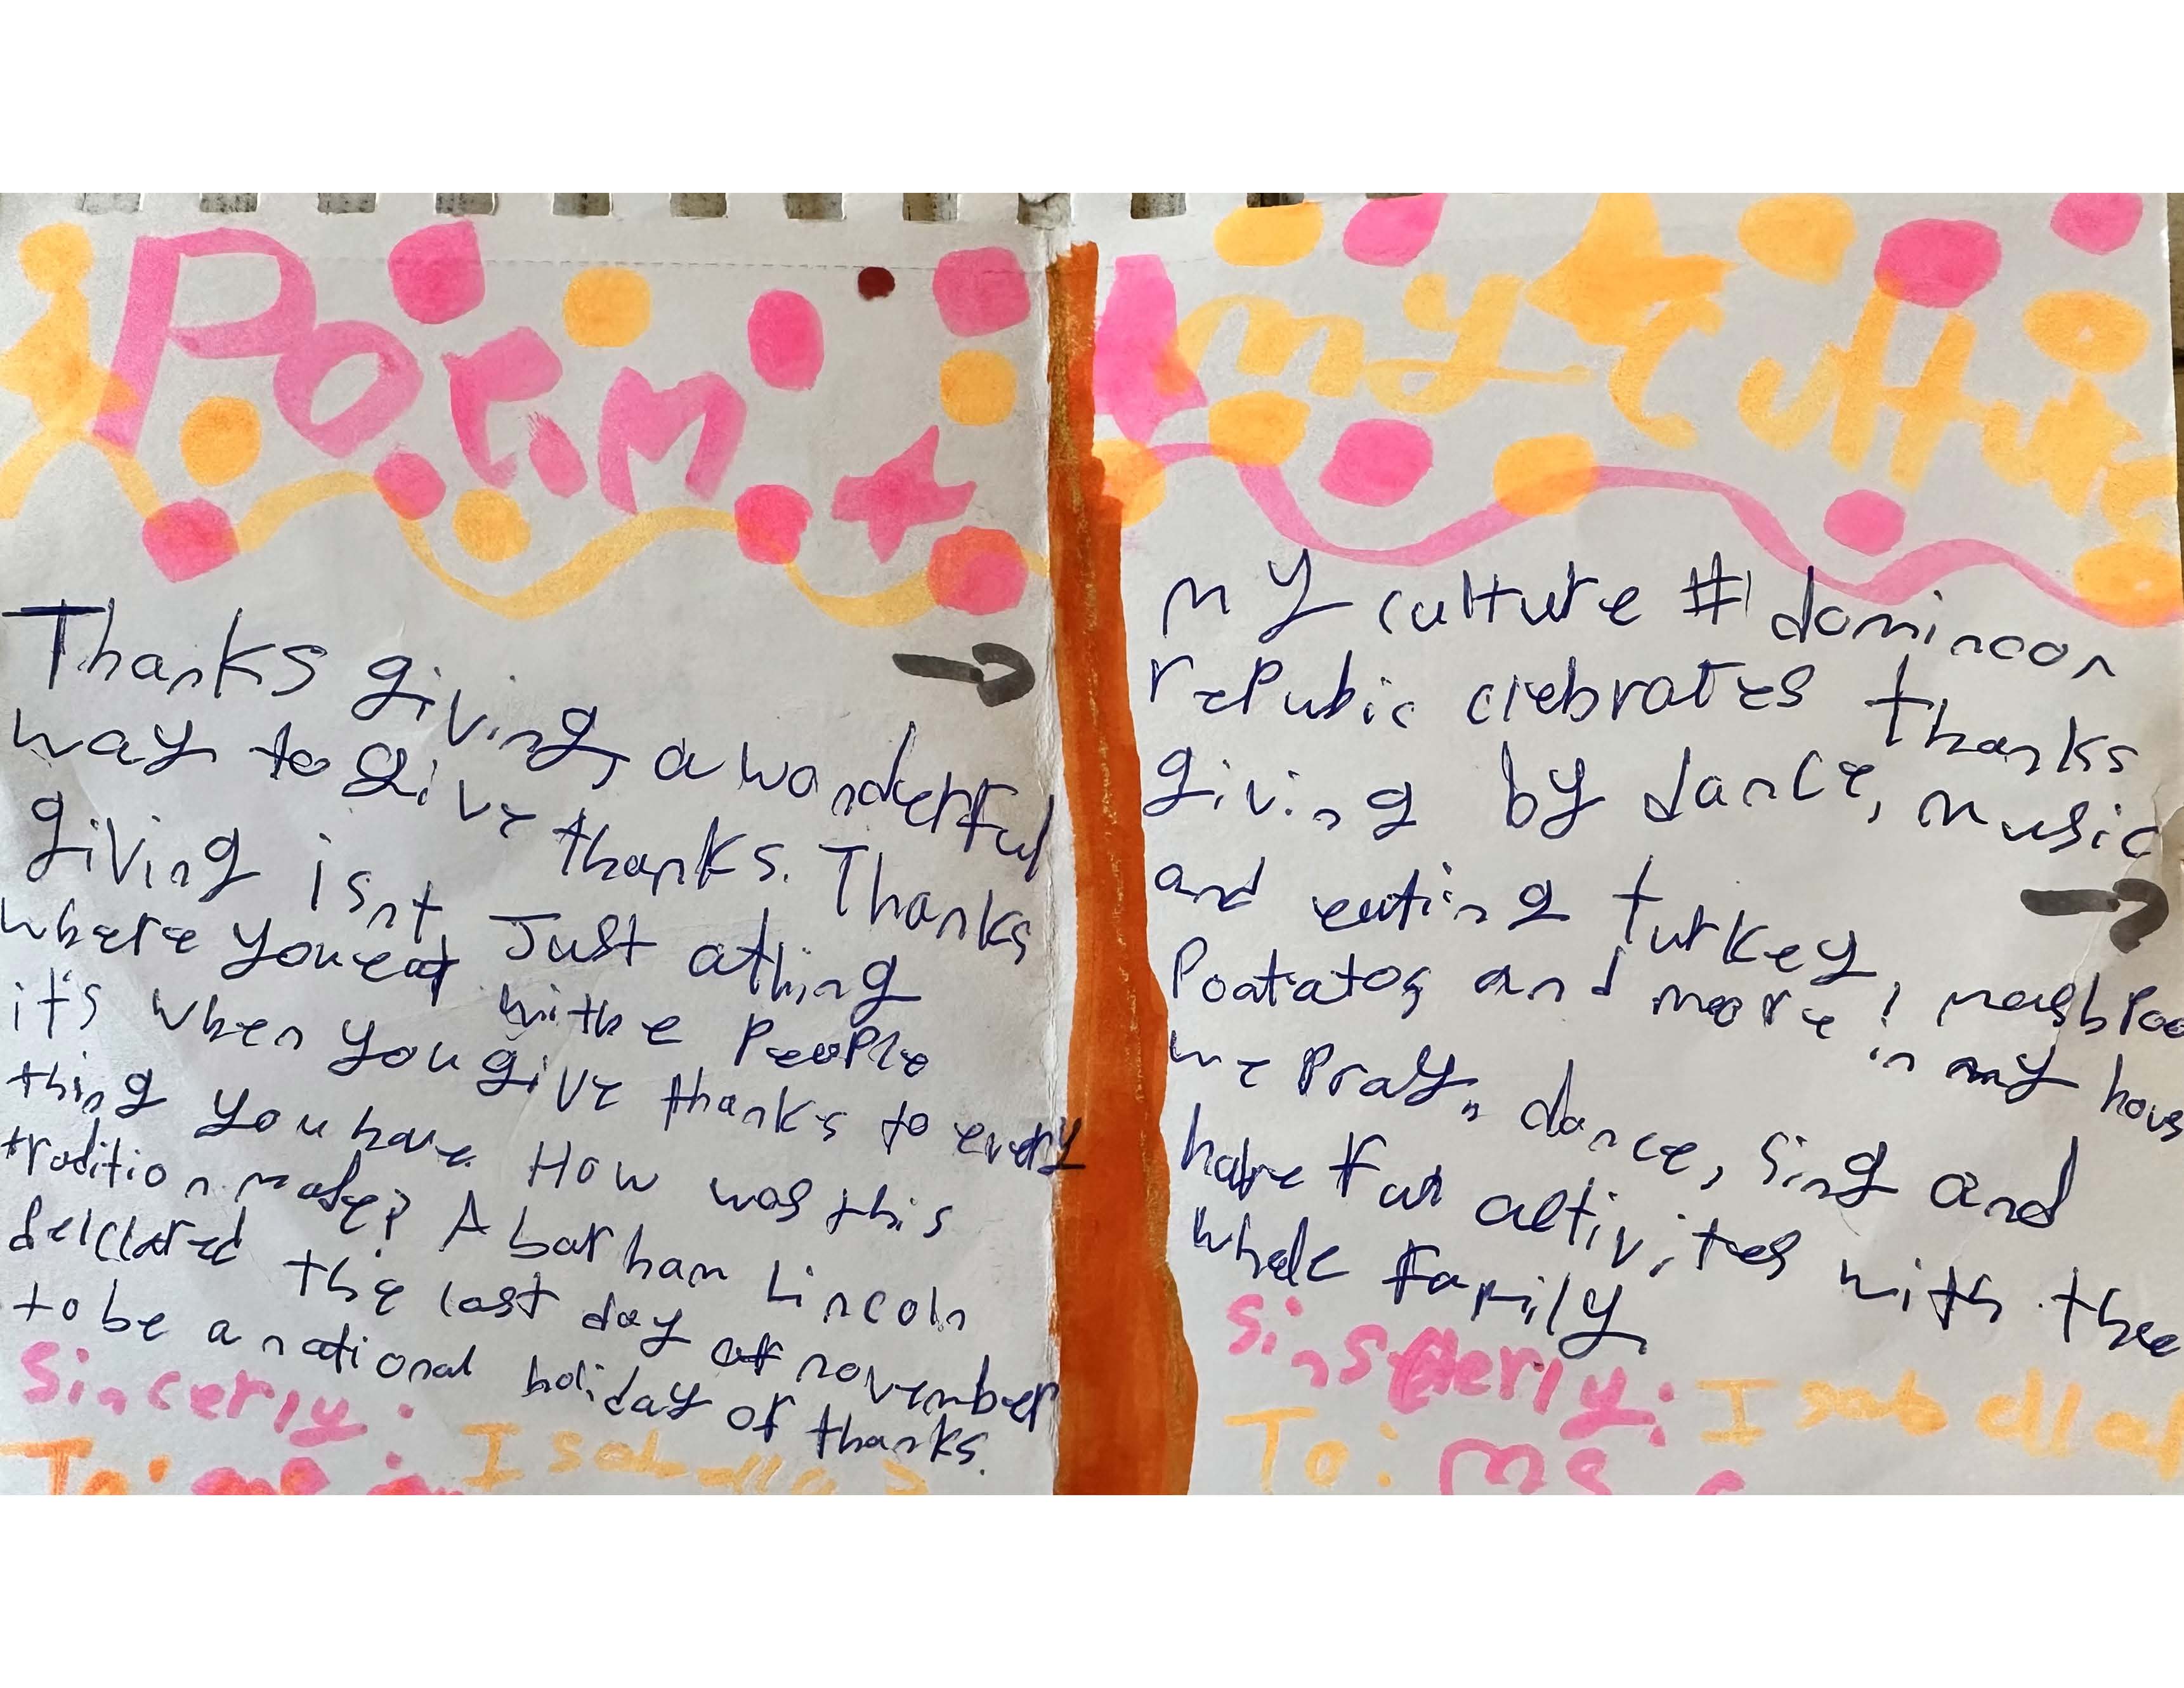 Poem
Thanks giving, a wonderful
way to give thanks. Thanks
giving isnt Just a thing
where you eat withe people
it's when you give thanks to every
thing you have. How was this
tradition made? Abarham Lincoln
delclared the last day of november
to be a national holiday of thanks.
Sincerly: Isabella
To:
my culture
my culture # domincan
rePubic clebrates thanks
giving by dance, music
and eating turkey, mash Poo
Poatatos and more! in my hous
we Pray, dance, sing and
have fun activites with thee
whole family
Sinserly: Isabella
To: ms